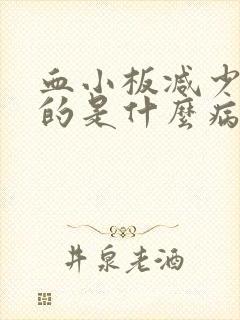 血小板减少
的是什麽病
井泉老酒